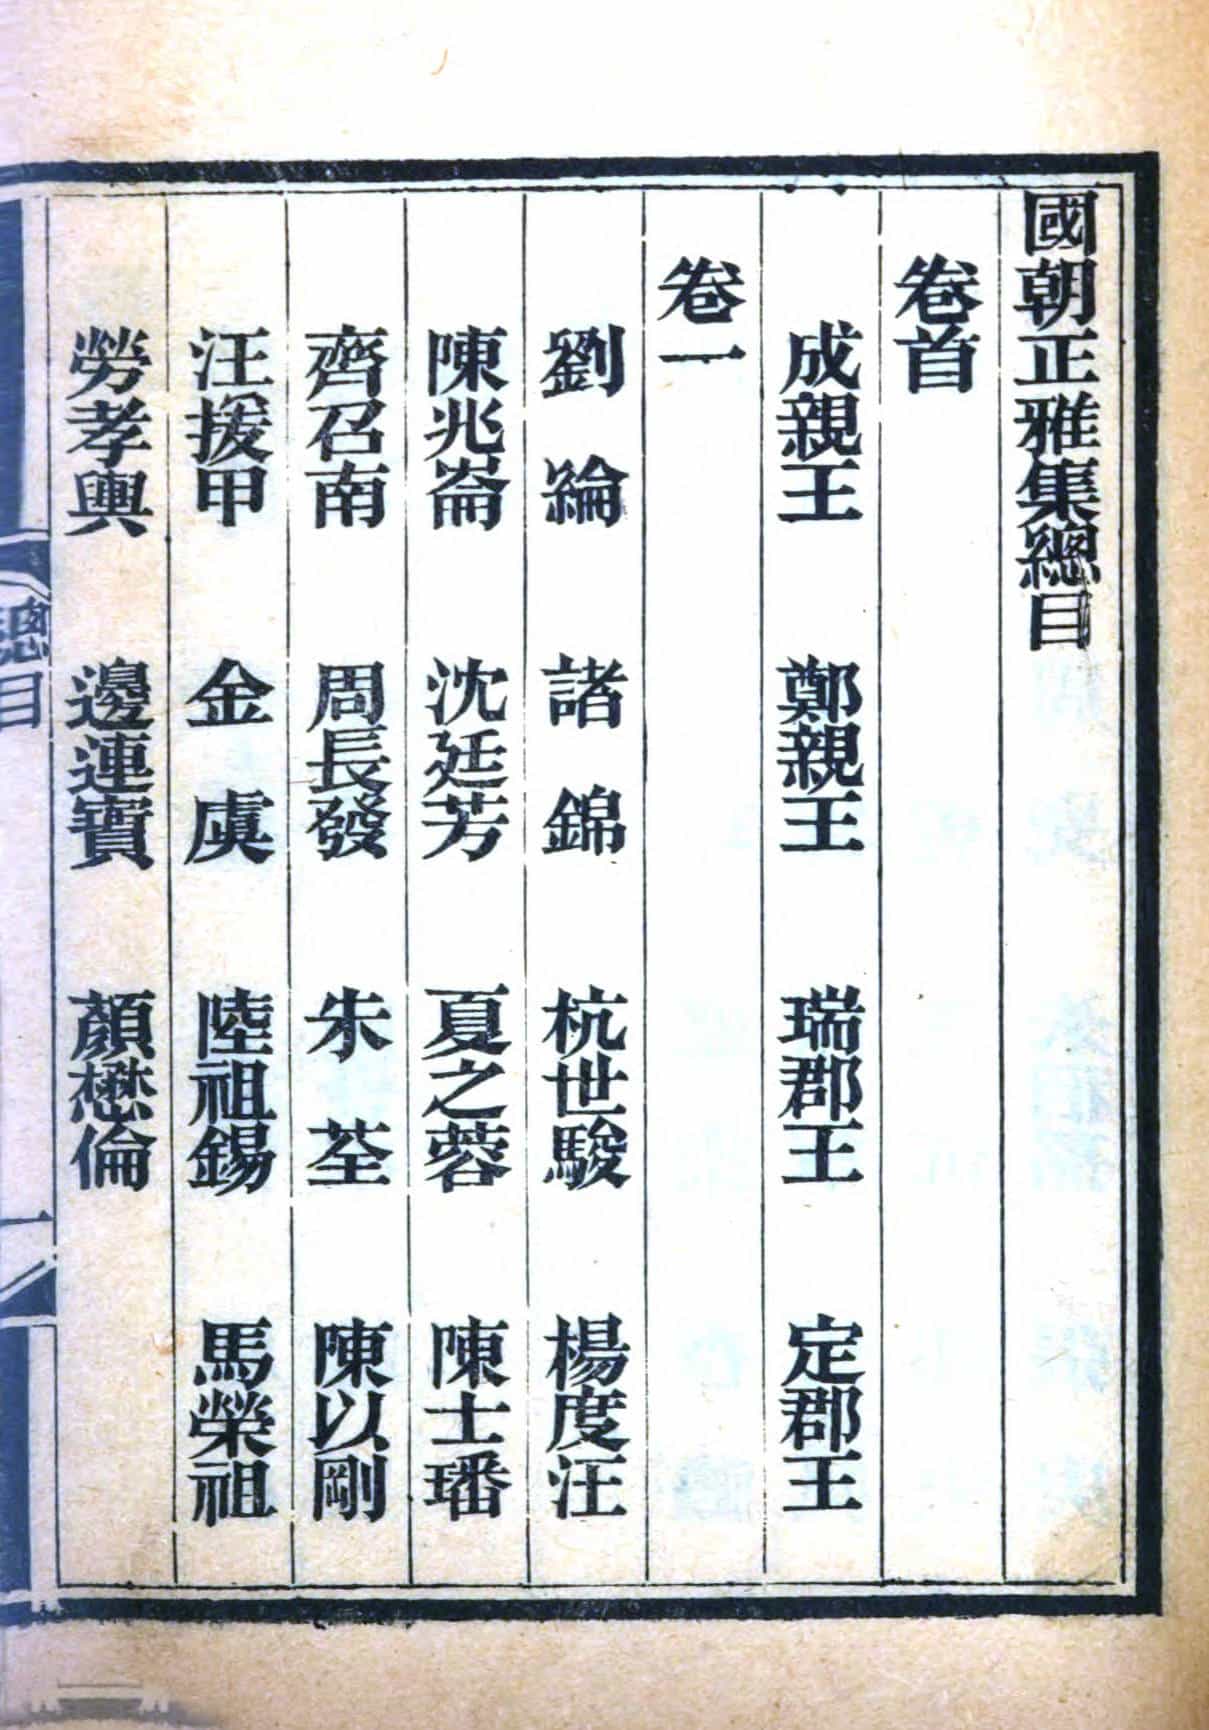 國朝正雅集總目
卷首
成親王　鄭親王　瑞郡王　定郡王
卷一
劉綸　諸錦　杭世駿　楊度汪
陳兆崙　沈廷芳　夏之蓉　陳士璠
齊召南　周長發　朱荃　陳以剛
汪援甲　金虞　陸祖錫　馬榮祖
勞孝輿　邊連寶　顏懋倫
總目
一